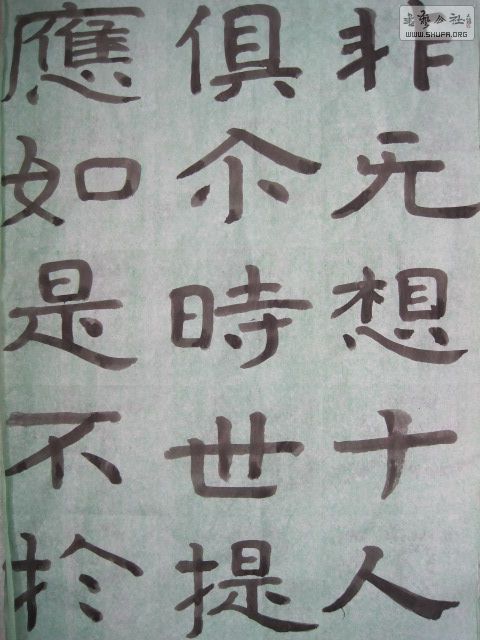 非无想十人
俱尒時世提
應如是不扵
書藝公社
WWW.SHUFA.ORG